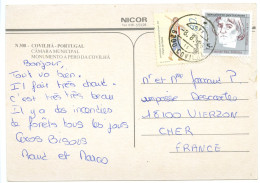 NICOR
N 308 - COVILHÃ - PORTUGAL
CÂMARA MUNICIPAL
MONUMENTO A PERO DA COVILHÃ
Bonjour,
Tout va bien.
Il fait très chaud.
C'est très très beau
Il y a des incendies
de forêts tous les jours
Gros Bisous
et
impasse Descartes
18100 VIERZON
CHER
FRANCE